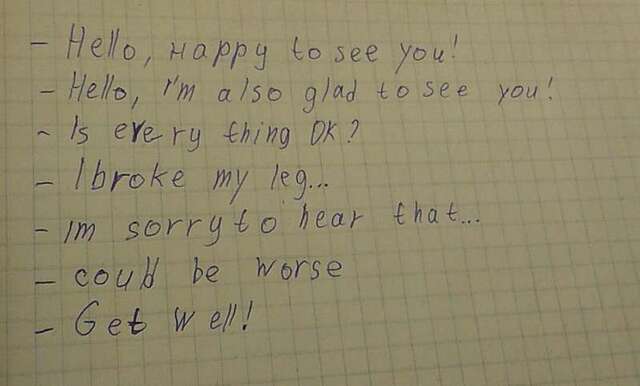 - Hello, нappy to see you!
- Hello, I'm also glad to see you!
- Is every thing OK?
- I broke my leg...
- Im sorry to hear that...
- could be worse
- Get well!